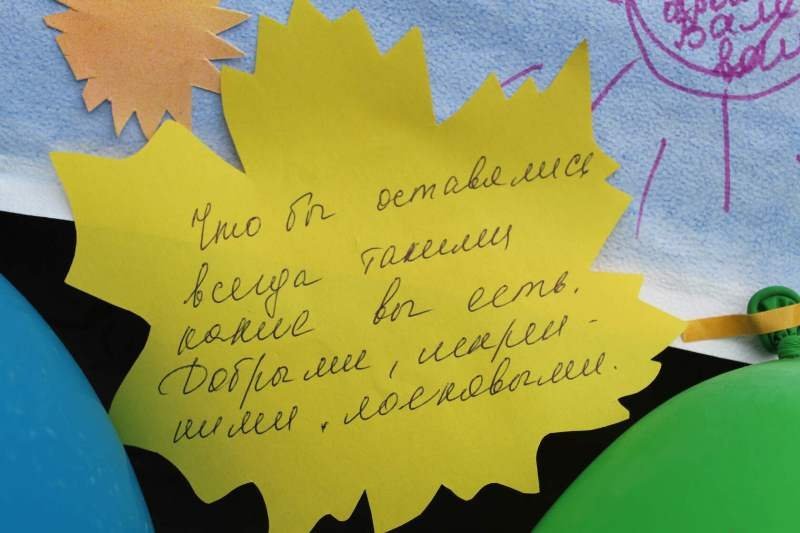 Вале
Что бы оставались
всегда такими
какие вы есть.
Добрыми, искрен-
ними, ласковыми.